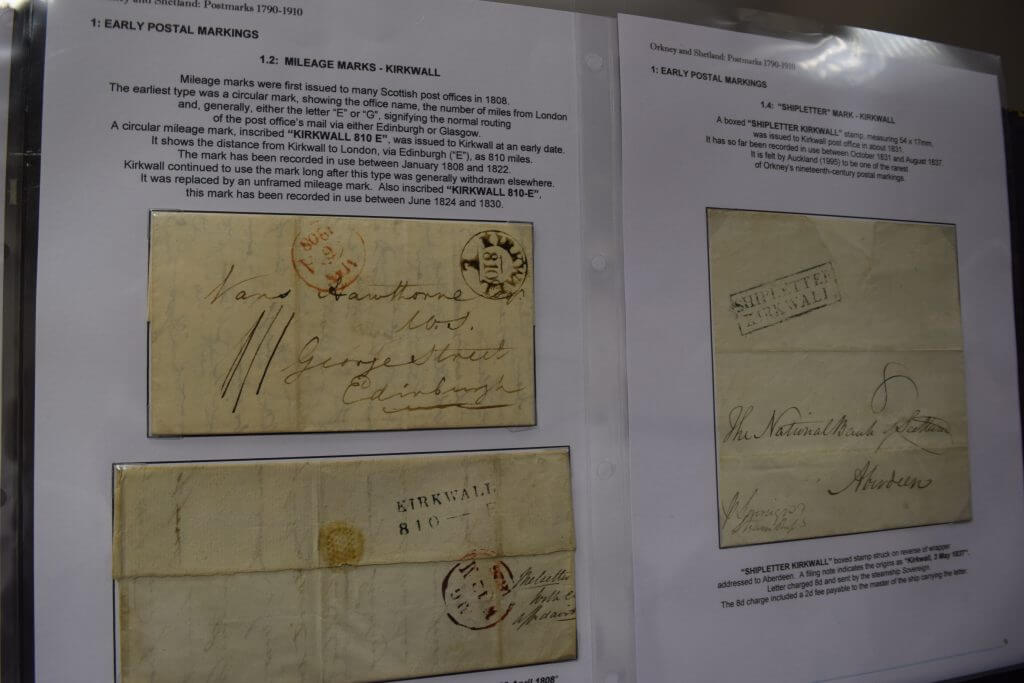 ney and Shetland: Postmarks 1790-1910
1: EARLY POSTAL MARKINGS
1.2: MILEAGE MARKS - KIRKWALL
Mileage marks were first issued to many Scottish post offices in 1808.
The earliest type was a circular mark, showing the office name, the number of miles from London
and, generally, either the letter "E" or "G", signifying the normal routing
of the post office's mail via either Edinburgh or Glasgow.
A circular mileage mark, inscribed "KIRKWALL 810 E", was issued to Kirkwall at an early date.
It shows the distance from Kirkwall to London, via Edinburgh ("E"), as 810 miles.
The mark has been recorded in use between January 1808 and 1822.
Kirkwall continued to use the mark long after this type was generally withdrawn elsewhere.
It was replaced by an unframed mileage mark. Also inscribed "KIRKWALL 810-E",
this mark has been recorded in use between June 1824 and 1830.
KIRKWALL
810
Vans Hawthorne Esqr
W.S.
George Street
Edinburgh
KIRKWALL
810 — E
April 1808"
Orkney and Shetland: Postmarks 1790-1910
1: EARLY POSTAL MARKINGS
1.4: "SHIPLETTER" MARK - KIRKWALL
A boxed "SHIPLETTER KIRKWALL" stamp, measuring 54 x 17mm,
was issued to Kirkwall post office in about 1831.
It has so far been recorded in use between October 1831 and August 1837.
It is felt by Auckland (1995) to be one of the rarest
of Orkney's nineteenth-century postal markings.
SHIPLETTER
KIRKWALL
8
The National Bank of Scotland
Aberdeen
"SHIPLETTER KIRKWALL" boxed stamp struck on reverse of wrapper
addressed to Aberdeen. A filing note indicates the origins as "Kirkwall, 3 May 1837".
Letter charged 8d and sent by the steamship Sovereign.
The 8d charge included a 2d fee payable to the master of the ship carrying the letter.